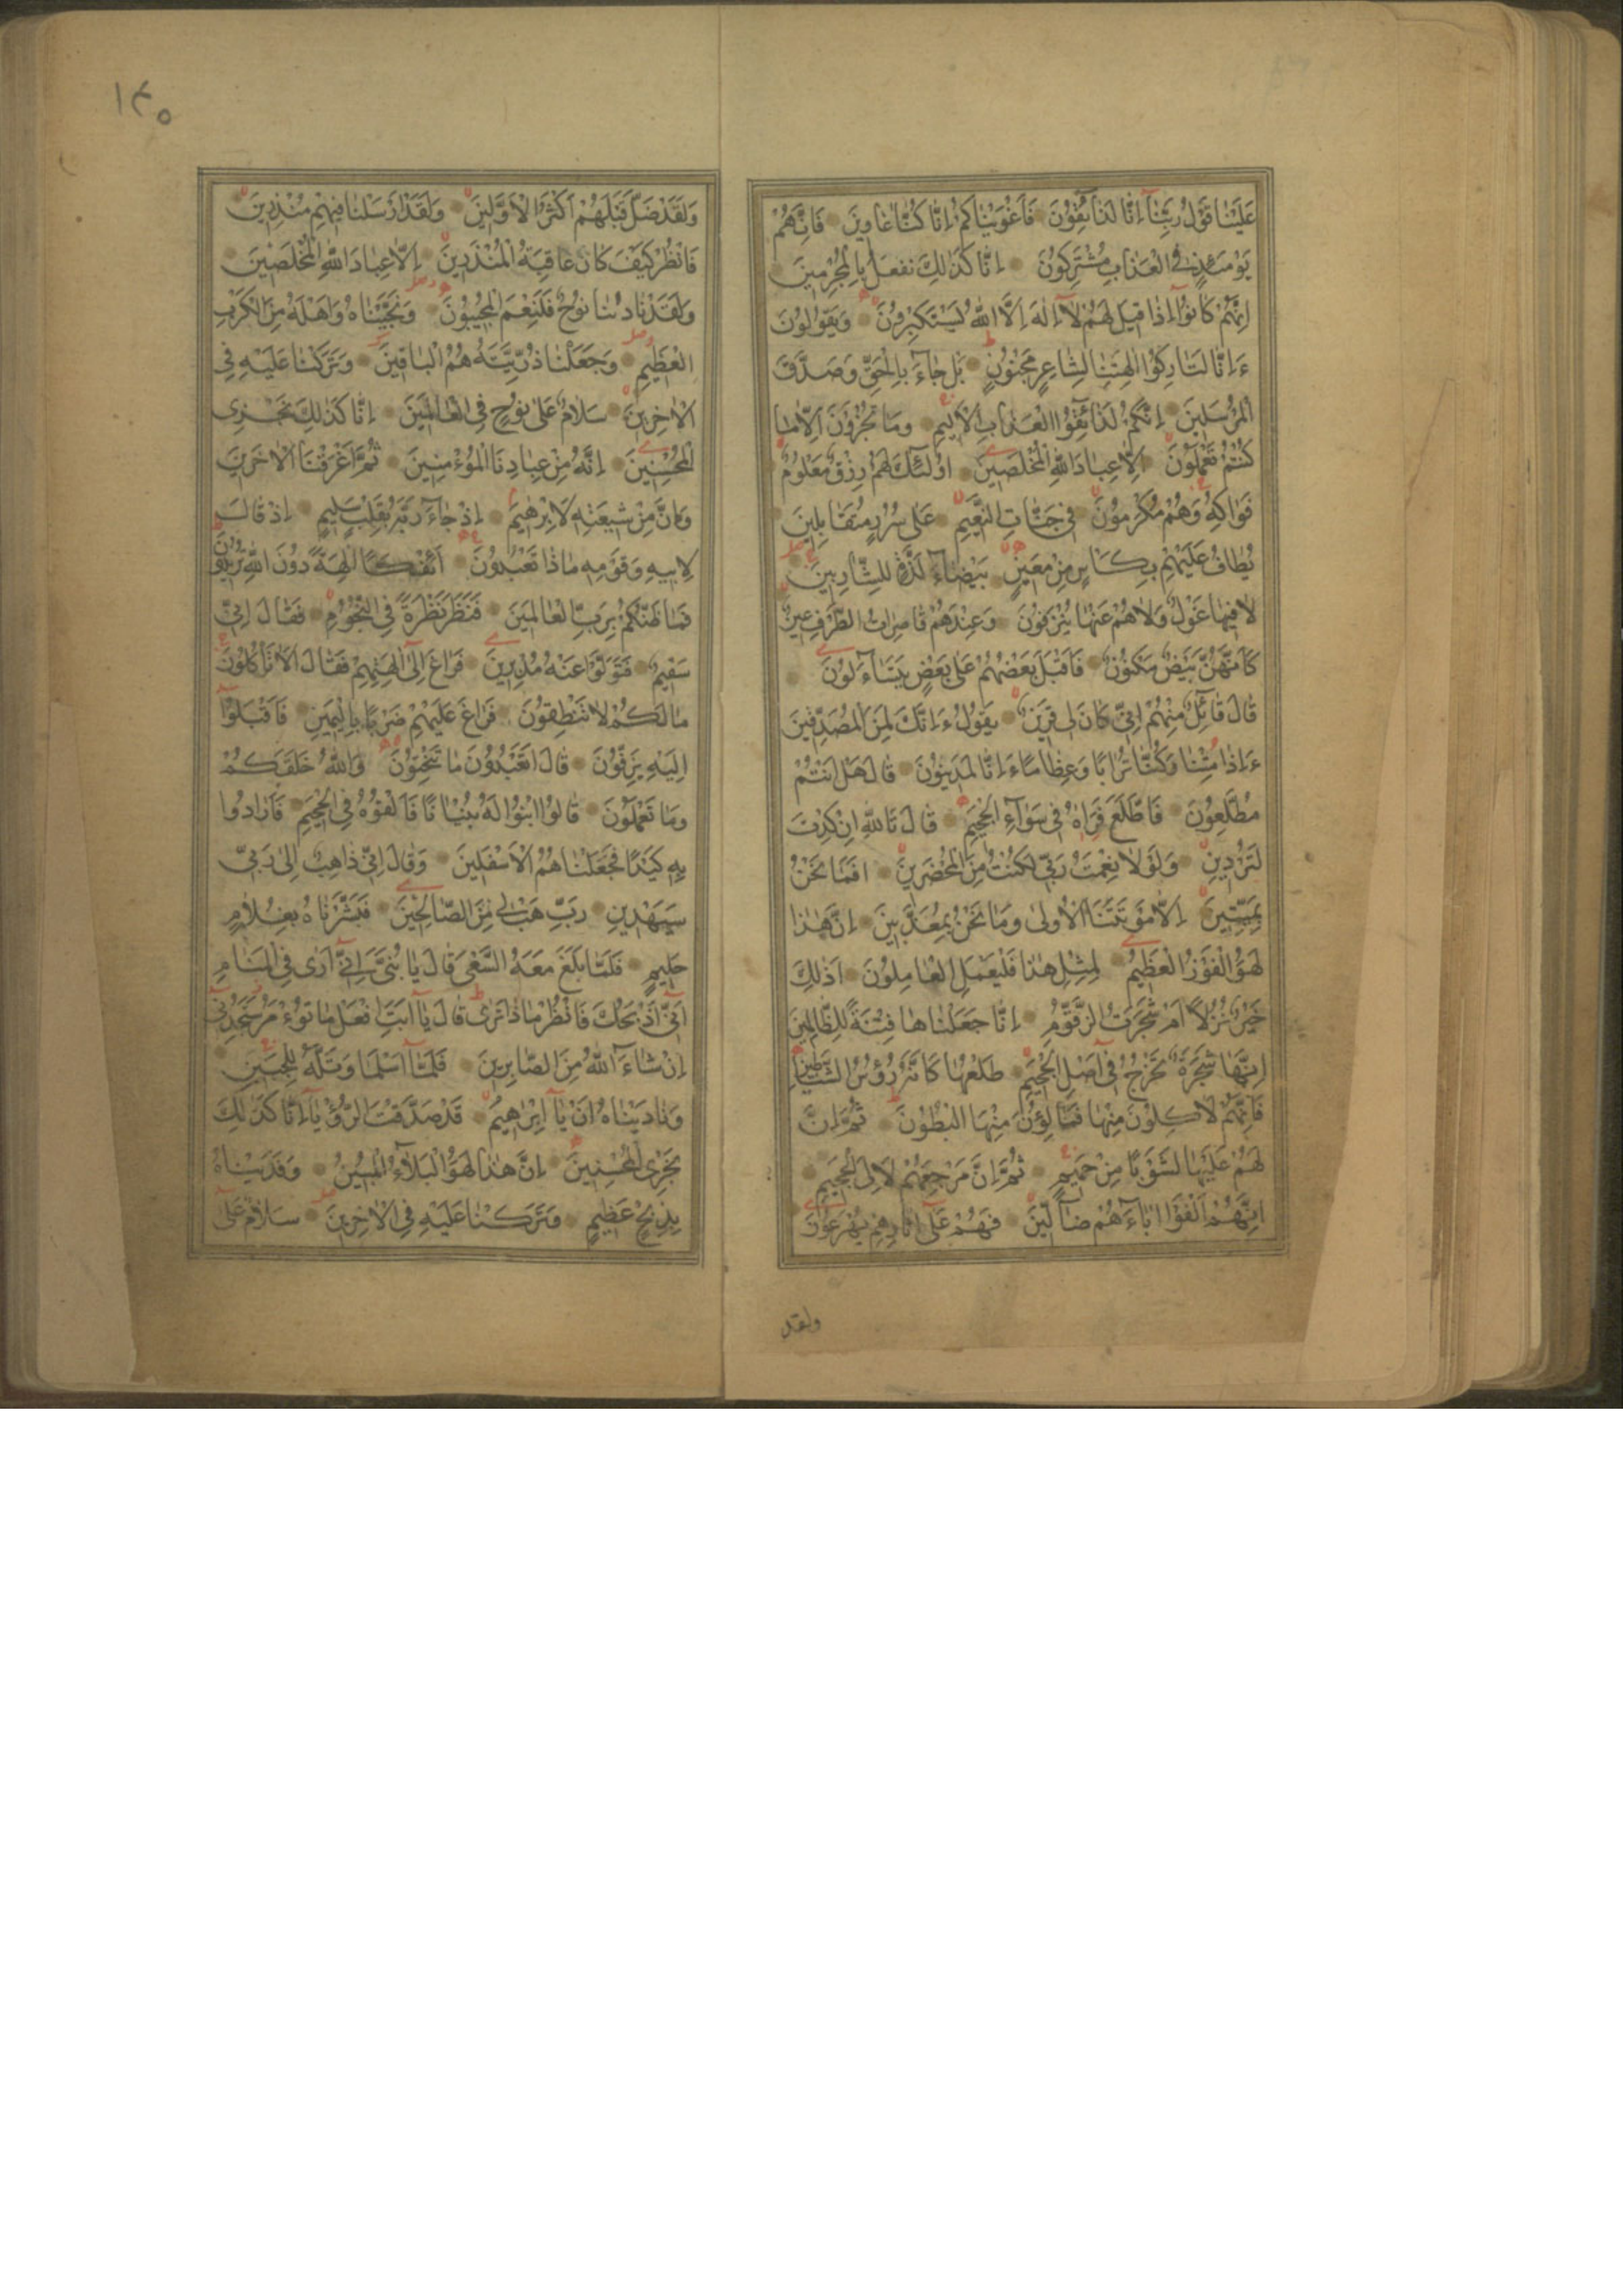 عَلَيْنَا قَوْلُ رَبِّنَآ اِنَّا لَذَآئِقُوْنَ فَاَغْوَيْنَاكُمْ اِنَّا كُنَّا غَاوِينَ فَاِنَّهُمْ
يَوْمَئِذٍ فِي الْعَذَابِ مُشْتَرِكُونَ اِنَّا كَذٰلِكَ نَفْعَلُ بِالْمُجْرِمِينَ
اِنَّهُمْ كَانُوْا اِذَا قِيلَ لَهُمْ لَآ اِلٰهَ اِلَّا اللّٰهُ يَسْتَكْبِرُونَ وَيَقُولُونَ
ءَاِنَّا لَتَارِكُوْا اٰلِهَتِنَا لِشَاعِرٍ مَجْنُونٍ بَلْ جَآءَ بِالْحَقِّ وَصَدَّقَ
الْمُرْسَلِينَ اِنَّكُمْ لَذَآئِقُوْا الْعَذَابِ الْاَلِيمِ وَمَا تُجْزَوْنَ اِلَّا مَا
كُنْتُمْ تَعْمَلُونَ اِلَّا عِبَادَ اللّٰهِ الْمُخْلَصِينَ اُولٰئِكَ لَهُمْ رِزْقٌ مَعْلُومٌ
فَوَاكِهُ وَهُمْ مُكْرَمُونَ فِي جَنَّاتِ النَّعِيمِ عَلٰى سُرُرٍ مُتَقَابِلِينَ
يُطَافُ عَلَيْهِمْ بِكَاْسٍ مِنْ مَعِينٍ بَيْضَآءَ لَذَّةٍ لِلشَّارِبِينَ
لَا فِيهَا غَوْلٌ وَلَا هُمْ عَنْهَا يُنْزَفُونَ وَعِنْدَهُمْ قَاصِرَاتُ الطَّرْفِ عِينٌ
كَاَنَّهُنَّ بَيْضٌ مَكْنُونٌ فَاَقْبَلَ بَعْضُهُمْ عَلٰى بَعْضٍ يَتَسَآءَلُونَ
قَالَ قَآئِلٌ مِنْهُمْ اِنِّي كَانَ لِي قَرِينٌ يَقُولُ ءَاِنَّكَ لَمِنَ الْمُصَدِّقِينَ
ءَاِذَا مِتْنَا وَكُنَّا تُرَابًا وَعِظَامًا ءَاِنَّا لَمَدِينُونَ قَالَ هَلْ اَنْتُمْ
مُطَّلِعُونَ فَاطَّلَعَ فَرَاٰهُ فِي سَوَآءِ الْجَحِيمِ قَالَ تَاللّٰهِ اِنْ كِدْتَ
لَتُرْدِينِ وَلَوْلَا نِعْمَتُ رَبِّي لَكُنْتُ مِنَ الْمُحْضَرِينَ اَفَمَا نَحْنُ
بِمَيِّتِينَ اِلَّا مَوْتَتَنَا الْاُولٰى وَمَا نَحْنُ بِمُعَذَّبِينَ اِنَّ هٰذَا
لَهُوَ الْفَوْزُ الْعَظِيمُ لِمِثْلِ هٰذَا فَلْيَعْمَلِ الْعَامِلُونَ اَذٰلِكَ
خَيْرٌ نُزُلًا اَمْ شَجَرَتُ الزَّقُّومِ اِنَّا جَعَلْنَاهَا فِتْنَةً لِلظَّالِمِينَ
اِنَّهَا شَجَرَةٌ تَخْرُجُ فِي اَصْلِ الْجَحِيمِ طَلْعُهَا كَاَنَّهُ رُؤُسُ الشَّيَاطِينِ
فَاِنَّهُمْ لَاٰكِلُونَ مِنْهَا فَمَالِؤُنَ مِنْهَا الْبُطُونَ ثُمَّ اِنَّ
لَهُمْ عَلَيْهَا لَشَوْبًا مِنْ حَمِيمٍ ثُمَّ اِنَّ مَرْجِعَهُمْ لَاِلَى الْجَحِيمِ
اِنَّهُمْ اَلْفَوْا اٰبَآءَهُمْ ضَآلِّينَ فَهُمْ عَلٰى اٰثَارِهِمْ يُهْرَعُونَ
ولقد
١٤٥
وَلَقَدْ ضَلَّ قَبْلَهُمْ اَكْثَرُ الْاَوَّلِينَ وَلَقَدْ اَرْسَلْنَا فِيهِمْ مُنْذِرِينَ
فَانْظُرْ كَيْفَ كَانَ عَاقِبَةُ الْمُنْذَرِينَ اِلَّا عِبَادَ اللّٰهِ الْمُخْلَصِينَ
وَلَقَدْ نَادٰنَا نُوحٌ فَلَنِعْمَ الْمُجِيبُونَ وَنَجَّيْنَاهُ وَاَهْلَهُ مِنَ الْكَرْبِ
الْعَظِيمِ وَجَعَلْنَا ذُرِّيَّتَهُ هُمُ الْبَاقِينَ وَتَرَكْنَا عَلَيْهِ فِي
الْاٰخِرِينَ سَلَامٌ عَلٰى نُوحٍ فِي الْعَالَمِينَ اِنَّا كَذٰلِكَ نَجْزِي
الْمُحْسِنِينَ اِنَّهُ مِنْ عِبَادِنَا الْمُؤْمِنِينَ ثُمَّ اَغْرَقْنَا الْاٰخَرِينَ
وَاِنَّ مِنْ شِيعَتِهِ لَاِبْرٰهِيمَ اِذْ جَآءَ رَبَّهُ بِقَلْبٍ سَلِيمٍ اِذْ قَالَ
لِاَبِيهِ وَقَوْمِهِ مَاذَا تَعْبُدُونَ اَئِفْكًا اٰلِهَةً دُونَ اللّٰهِ تُرِيدُونَ
فَمَا ظَنُّكُمْ بِرَبِّ الْعَالَمِينَ فَنَظَرَ نَظْرَةً فِي النُّجُومِ فَقَالَ اِنِّي
سَقِيمٌ فَتَوَلَّوْا عَنْهُ مُدْبِرِينَ فَرَاغَ اِلٰى اٰلِهَتِهِمْ فَقَالَ اَلَا تَاْكُلُونَ
مَا لَكُمْ لَا تَنْطِقُونَ فَرَاغَ عَلَيْهِمْ ضَرْبًا بِالْيَمِينِ فَاَقْبَلُوْا
اِلَيْهِ يَزِفُّونَ قَالَ اَتَعْبُدُونَ مَا تَنْحِتُونَ وَاللّٰهُ خَلَقَكُمْ
وَمَا تَعْمَلُونَ قَالُوا ابْنُوا لَهُ بُنْيَانًا فَاَلْقُوهُ فِي الْجَحِيمِ فَاَرَادُوا
بِهِ كَيْدًا فَجَعَلْنَاهُمُ الْاَسْفَلِينَ وَقَالَ اِنِّي ذَاهِبٌ اِلٰى رَبِّي
سَيَهْدِينِ رَبِّ هَبْ لِي مِنَ الصَّالِحِينَ فَبَشَّرْنَاهُ بِغُلَامٍ
حَلِيمٍ فَلَمَّا بَلَغَ مَعَهُ السَّعْيَ قَالَ يَا بُنَيَّ اِنِّي اَرٰى فِي الْمَنَامِ
اَنِّي اَذْبَحُكَ فَانْظُرْ مَاذَا تَرٰى قَالَ يَآ اَبَتِ افْعَلْ مَا تُؤْمَرُ سَتَجِدُنِي
اِنْ شَآءَ اللّٰهُ مِنَ الصَّابِرِينَ فَلَمَّآ اَسْلَمَا وَتَلَّهُ لِلْجَبِينِ
وَنَادَيْنَاهُ اَنْ يَآ اِبْرٰهِيمُ قَدْ صَدَّقْتَ الرُّؤْيَآ اِنَّا كَذٰلِكَ
نَجْزِي الْمُحْسِنِينَ اِنَّ هٰذَا لَهُوَ الْبَلَآءُ الْمُبِينُ وَفَدَيْنَاهُ
بِذِبْحٍ عَظِيمٍ وَتَرَكْنَا عَلَيْهِ فِي الْاٰخِرِينَ سَلَامٌ عَلٰى